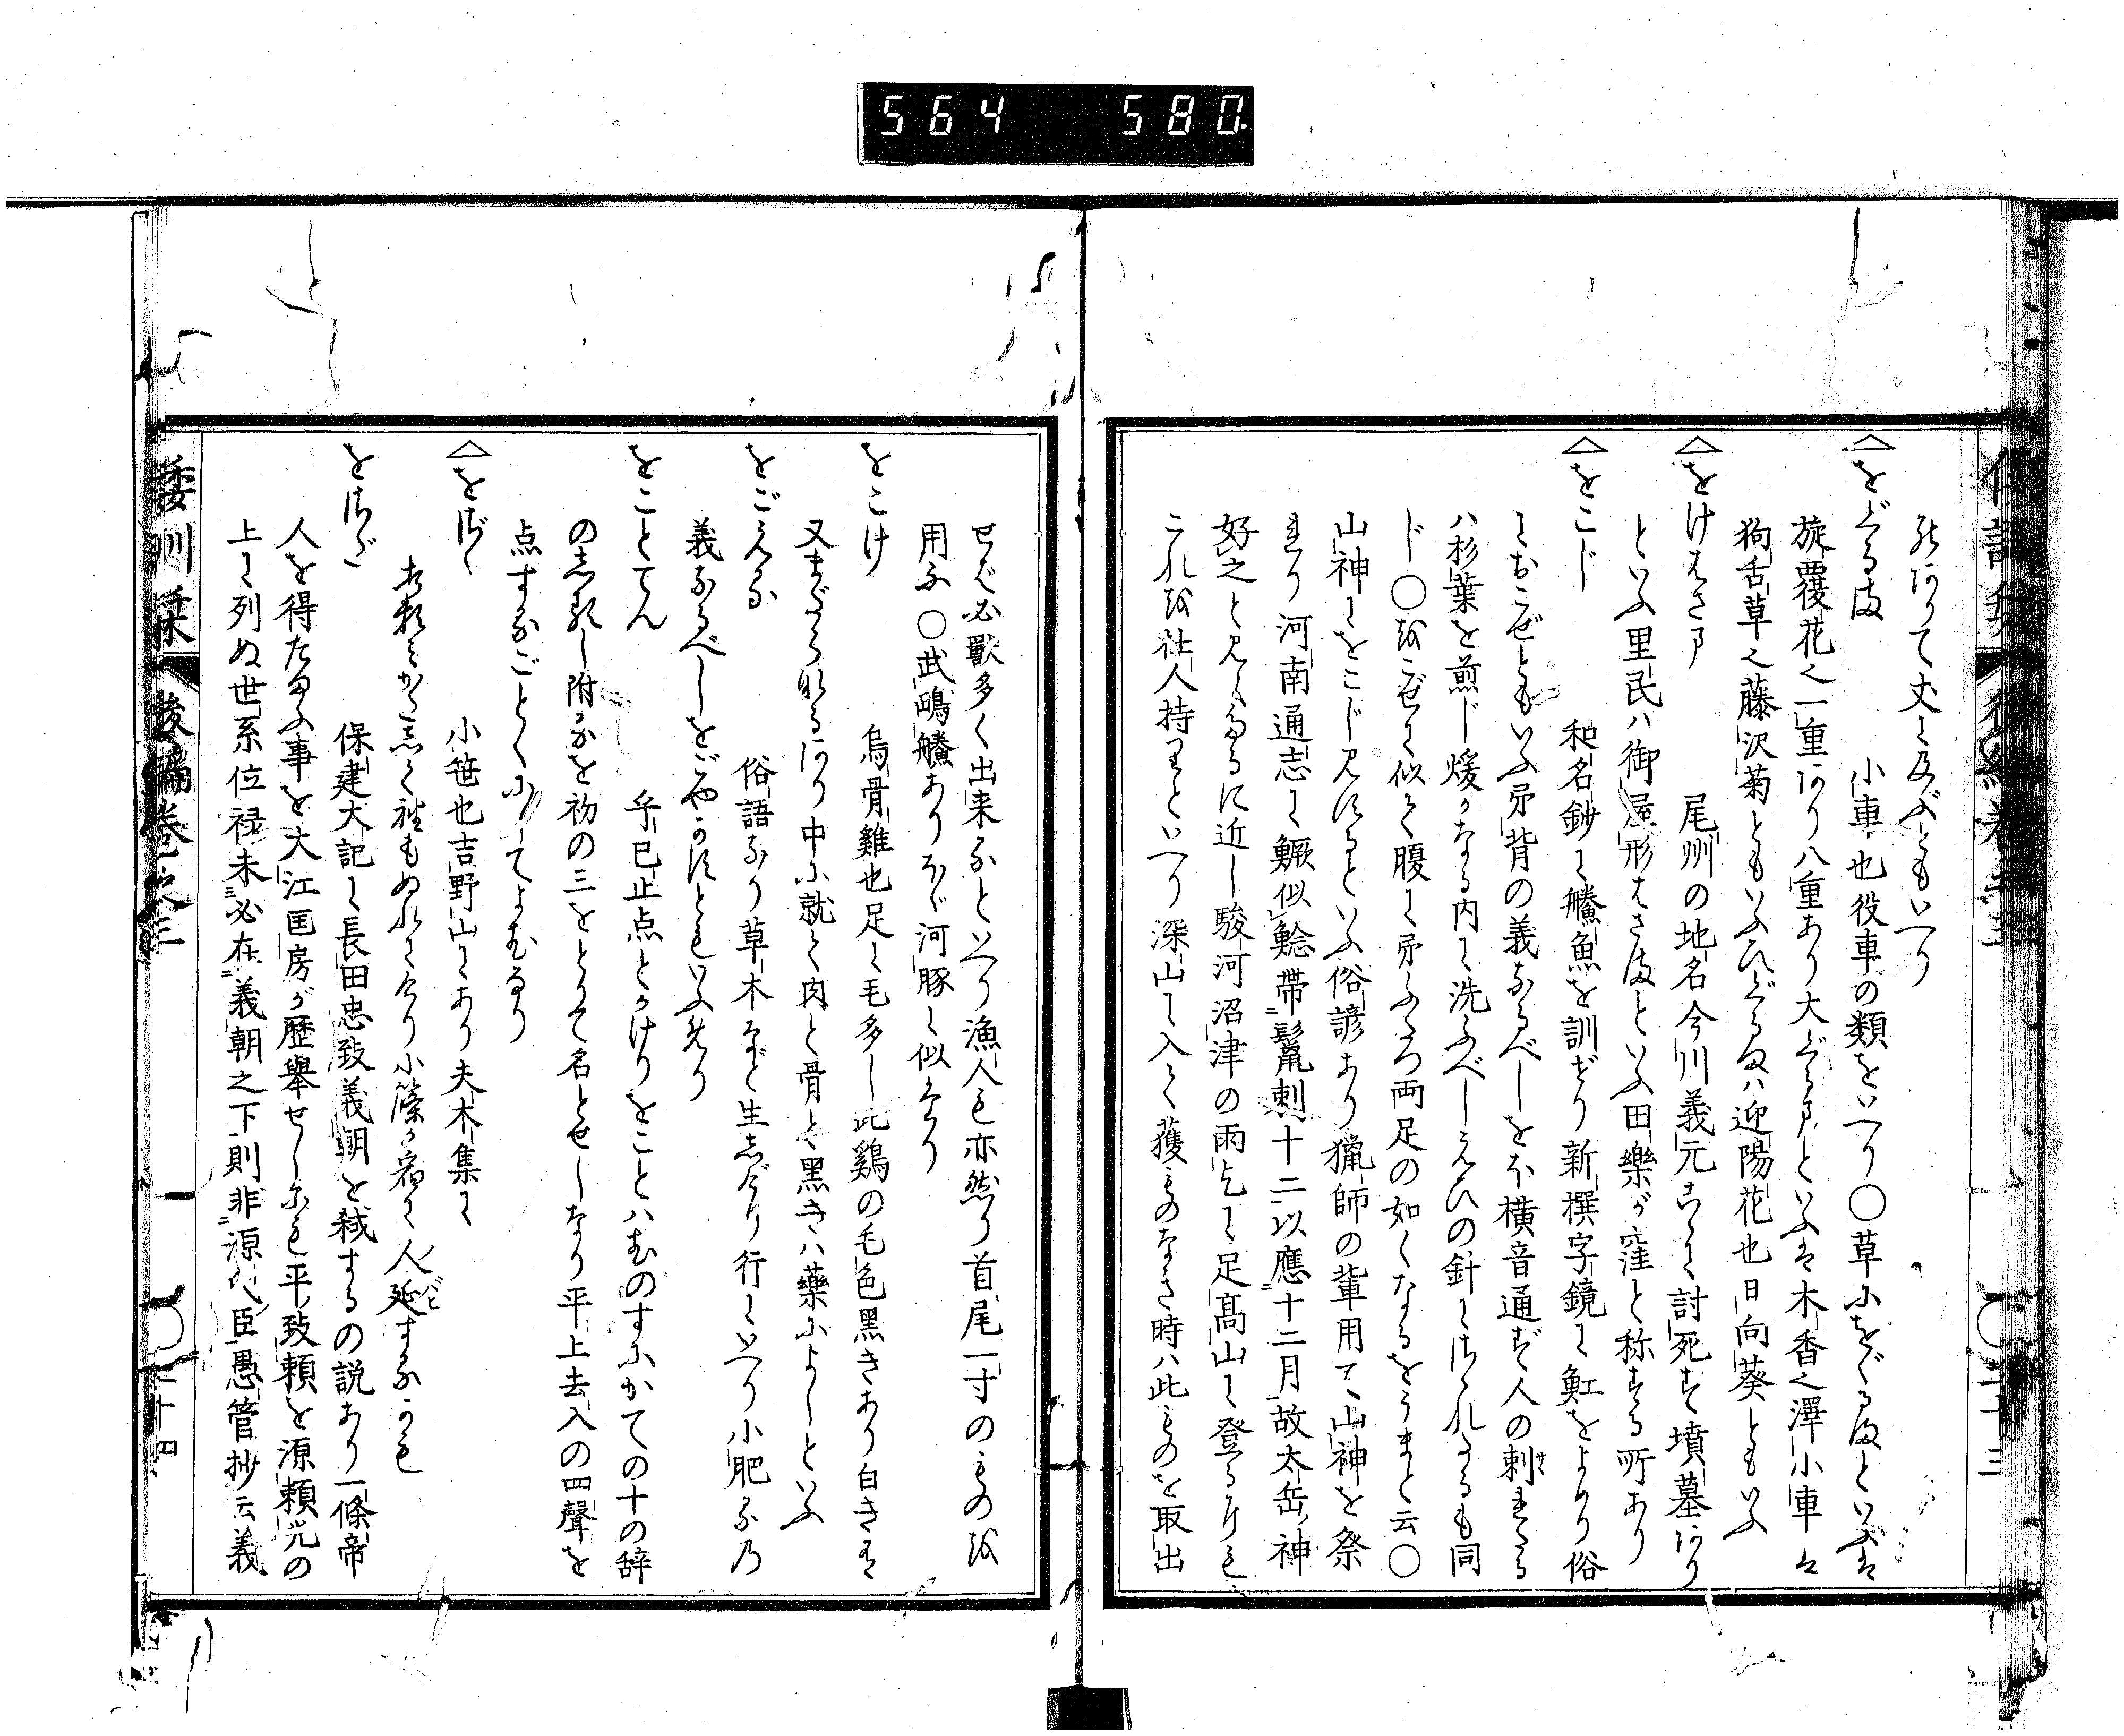 564 580
能ありて丈に及ぶともいへり
△をぐるま 小車也役車の類をいへり〇草小をぐるまといふは
旋覆花之一重あり八重あり大ぐるまといふは木香之澤小車は
狗舌草之藤沢菊ともいふひぐるまハ迎陽花也日向葵ともいふ
△をけはさま 尾州の地名今川義元こゝに討死す墳墓あり
といふ里民ハ御屋形はさまといふ田樂が窪と称する所あり
△をこじ 和名鈔に䲍魚を訓ぜり新撰字鏡に魟をよめり俗
におこぜともいふ𡱈背の義なるべしをぶ横音通ず人の刺れたる
ハ杉葉を煎じ煖かなる内に洗ふべしえひの針にさゝれたるも同
じ〇おこぜに似て腹に𡱈ふたつ両足の如くなるをうまと云〇
山神にをこじ見するといふ俗諺あり獵師の輩用て山神を祭
れり河南通志に鱖似鯰帶鬣刺十二以應十二月故太岳神
好之と見えたるに近し駿河沼津の雨乞に足髙山に登るにも
これを社人持りといへり深山に入て獲ものなき時ハ此ものを取出
せば必獸多く出来るといへり漁人も亦然り首尾一寸のものを
用ふ〇武鴟䲍あり不ぐ河豚に似たり
をこけ 烏骨雞也足に毛多し此鶏の毛色黒きあり白きは
又まだらなるあり中に就て肉と骨と黒きハ藥によしといふ
をごえる 俗語なり草木など生しげり行にいへり小肥るの
義なるべしをごやかすともいふめり
をことてん 乎已止点とかけりをことハむのすみかての十の辞
のしるし附るを初の三をとりて名とせしなり平上去入の四聲を
点するごとくにしてよむなり
△をざゝ 小笹也吉野山にあり夫木集に
あれとかくしそ袖もぬれにけり小篠か宿に人延するかも
をさだ 保建大記に長田忠致義朝を弑するの説あり一條帝
人を得たまふ事を大江匡房が歴舉せしにも平致頼を源頼光の
上に列ぬ世系位禄未必在義朝之下則非源氏臣愚管抄云義
倭訓栞 後編巻之三 〇三十四